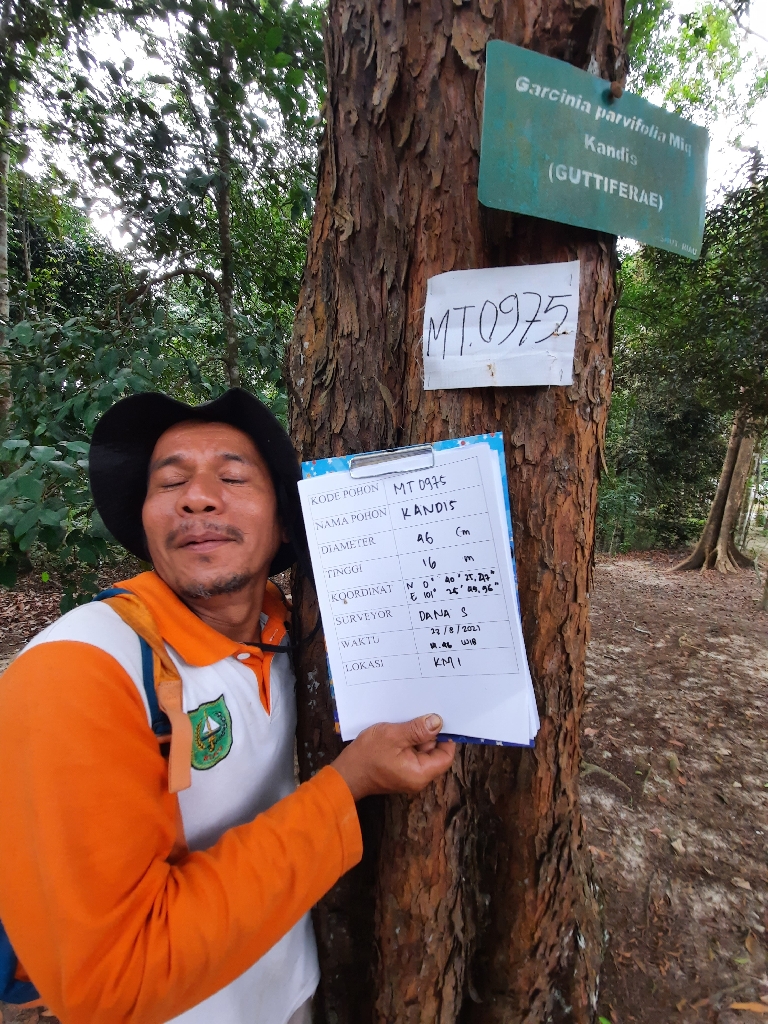 Garcinia parvifolia Miq
Kandis
(GUTTIFERAE)
MT.0975
KODE POHON MT 0975
NAMA POHON KANDIS
DIAMETER 46 Cm
TINGGI 16 m
KOORDINAT N 0° 40'
E 101°
SURVEYOR DANA S
WAKTU 22/8/2021
WIB
LOKASI KM 1